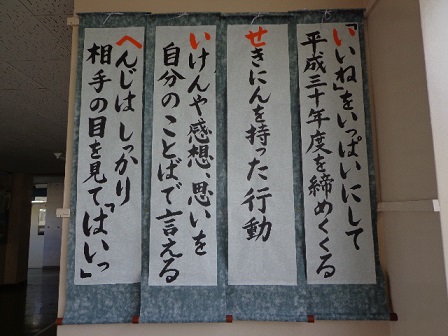 「いいね」をいっぱいにして
平成三十年度を締めくくる
せきにんを持った行動
いけんや感想、思いを
自分のことばで言える
へんじはしっかり
相手の目を見て「はいっ